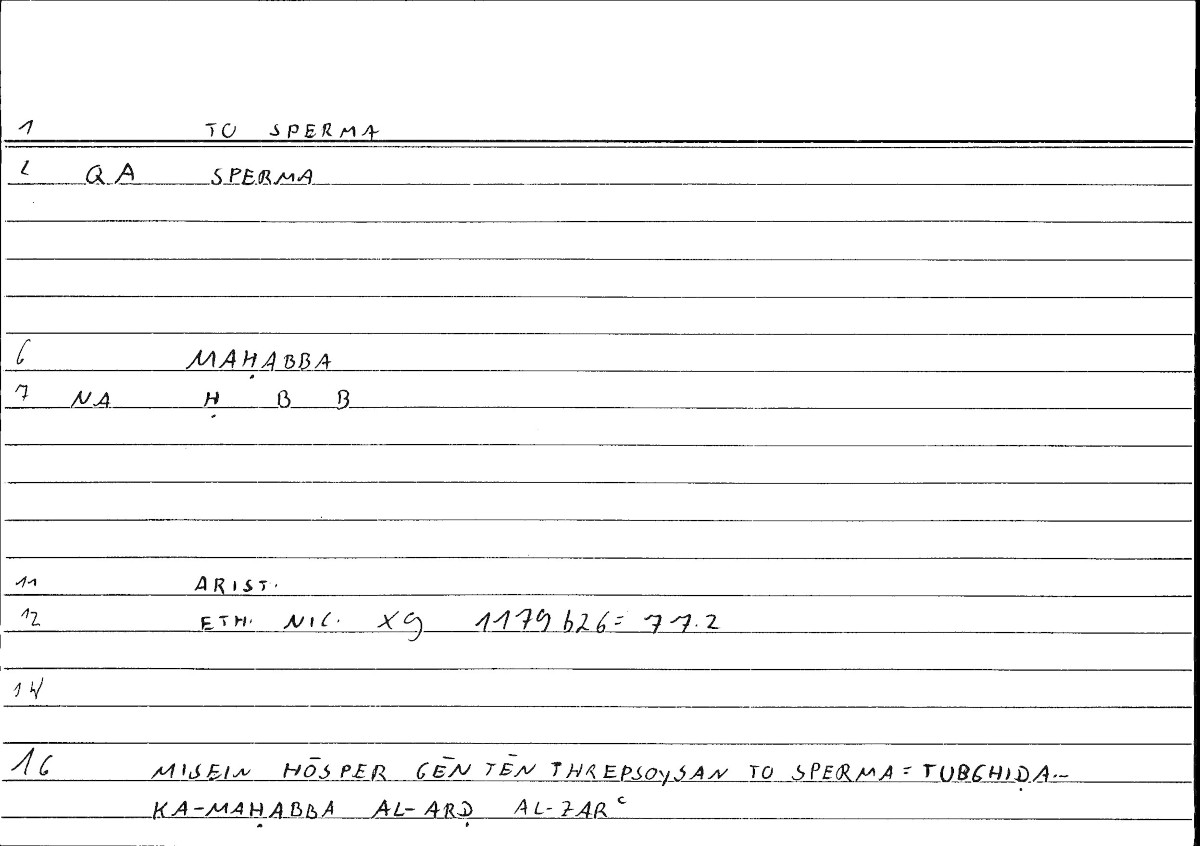 1 TO SPERMA
2 QA SPERMA
6 MAḤABBA
7 NA Ḥ B B
11 ARIST.
12 ETH. NIC. X9 1179 b26 = 77.2
14
16 MISEIN HŌSPER GĒN TĒN THREPSOYSAN TO SPERMA = TUBGHIḌA..
KA-MAḤABBA AL-ARḌ AL-ZARᶜ